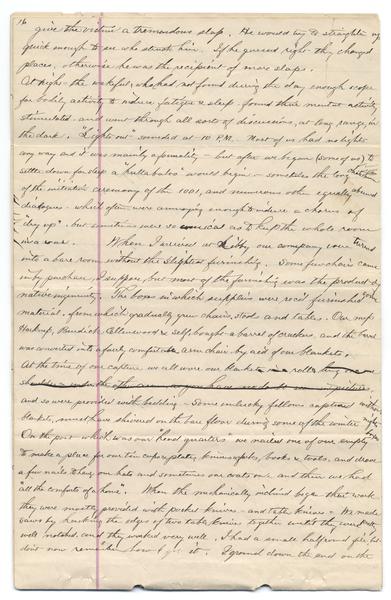 16
give the victim a tremendous slap. He would try to straighten up
quick enough to see who struck him. If he guessed right they changed
places, otherwise he was the recipient of more slaps.
At night the wakeful, who had not found during the day enough scope
for bodily activity to induce fatigue & sleep found their mental activity
stimulated and went through all sorts of discussions, at long range, in
the dark. "Lights out" sounded at 10 P.M. Most of us had no lights
any way and it was mainly a formality - but after we began (some of us) to
settle down for sleep a hullabaloo would begin - sometimes the long
of the initiation ceremony of the 1001, and numerous other equally absurd
dialogues - which often were annoying enough to induce a chorus of
"dry up" - but sometimes were so comical as to keep the whole room
in a roar. When I arrived at Libby, our company were turned
into a bare room without the slightest furnishing. Some few chairs came
in by purchase, I suppose, but most of the furnishing was the product of
native ingenuity. The boxes in which supplies were rec'd furnished
material, from which gradually grew chairs, stools and tables. Our mess
Burdick & self, bought a barrel of crackers, and the barrel
was converted into a fairly comfortable arm chair by aid of our blankets.
At the time of our capture we all wore our blankets
shoulder under the other arm
and so were provided with bedding - Some unlucky fellows captured without
blankets, must have shivered on the bare floor during some of the winter
On the post which was our "head quarters" we nailed one of our empty
to make a place for our tin cups, plates, knives & forks, books & tools, and drove
a few nails to hang our hats and sometimes our coats on and then we had
"all the comforts of a home". When the mechanically inclined began their work
they were mostly provided with pocket knives and table knives - We made
saws by hacking the edges of two table knives together until they were both
well notched, and they worked very well. I had a small half round file, tho
don't now remember how I got it. I ground down the end on the